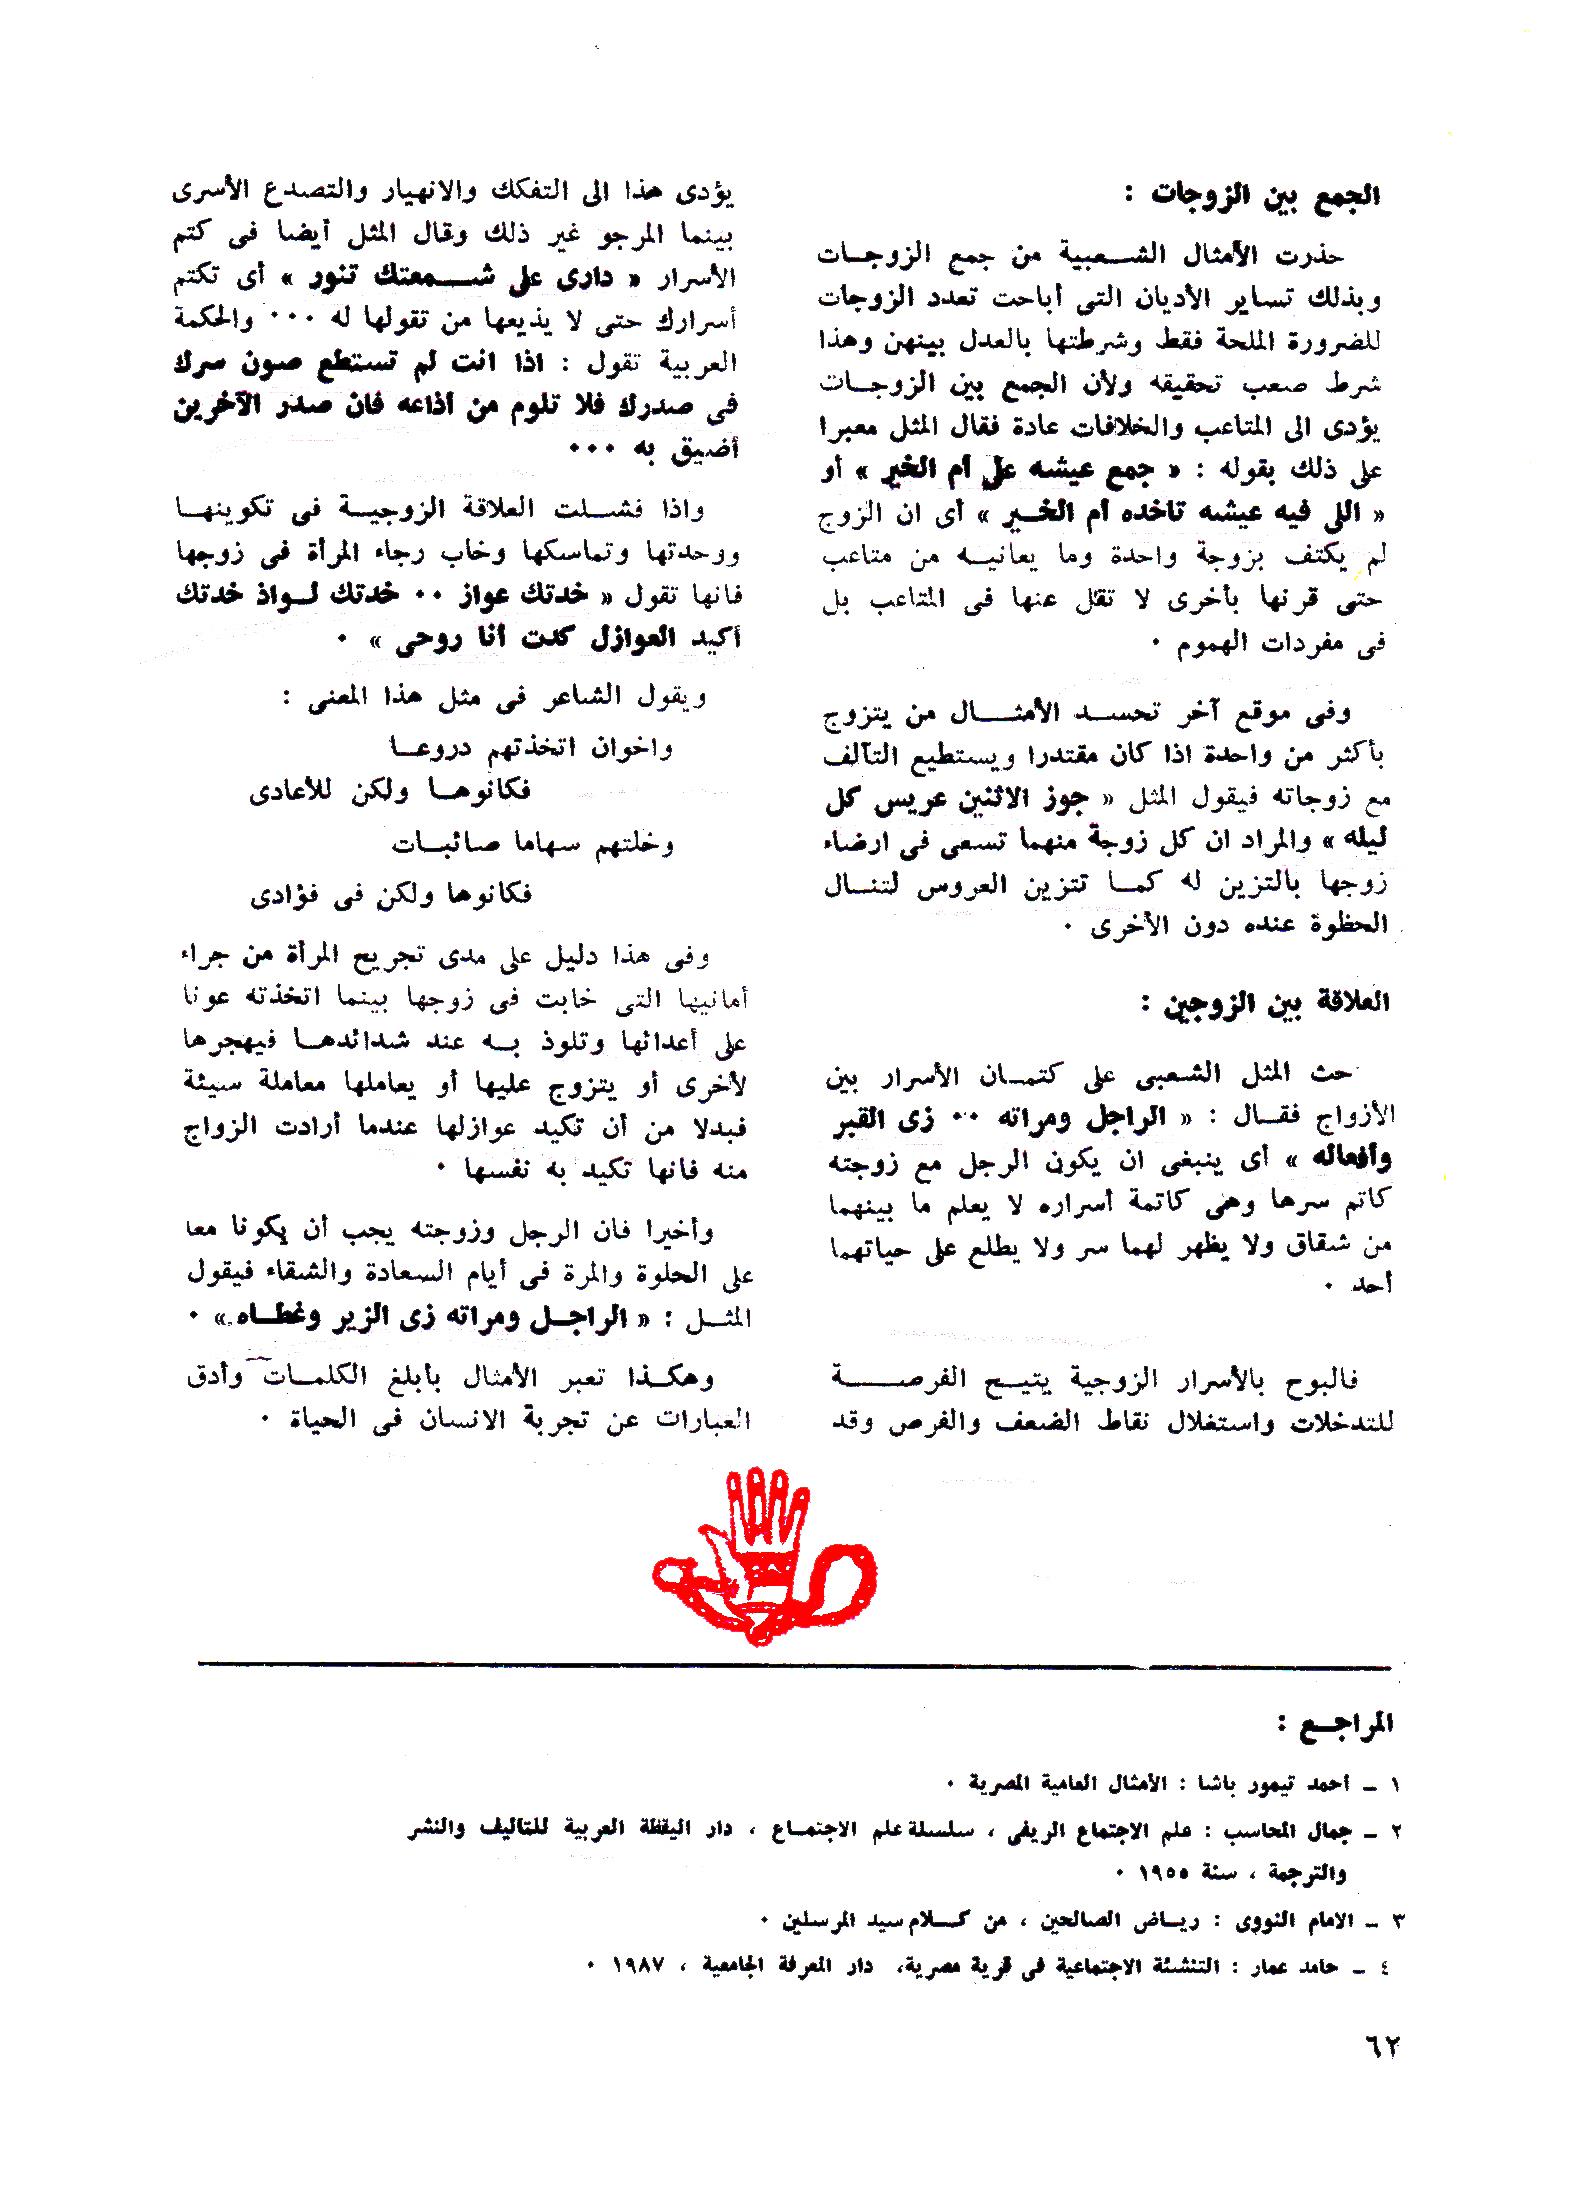 الجمع بين الزوجات :
حذرت الأمثال الشعبية من جمع الزوجات
وبذلك تساير الأديان التى أباحت تعدد الزوجات
للضرورة الملحة فقط وشرطتها بالعدل بينهن وهذا
شرط صعب تحقيقه ولأن الجمع بين الزوجات
يؤدى الى المتاعب والخلافات عادة فقال المثل معبرا
على ذلك بقوله : « جمع عيشه على أم الخير » أو
« اللى فيه عيشه تاخده أم الخير » أى ان الزوج
لم يكتف بزوجة واحدة وما يعانيه من متاعب
حتى قرنها بأخرى لا تقل عنها فى المتاعب بل
فى مفردات الهموم ٠
وفى موقع آخر تحسد الأمثال من يتزوج
بأكثر من واحدة اذا كان مقتدرا ويستطيع التآلف
مع زوجاته فيقول المثل « جوز الاثنين عريس كل
ليله » والمراد ان كل زوجة منهما تسعى فى ارضاء
زوجها بالتزين له كما تتزين العروس لتنال
الحظوة عنده دون الأخرى ٠
العلاقة بين الزوجين :
حث المثل الشعبى على كتمان الأسرار بين
الأزواج فقال : « الراجل ومراته ٠٠ زى القبر
وأفعاله » أى ينبغى ان يكون الرجل مع زوجته
كاتم سرها وهى كاتمة أسراره لا يعلم ما بينهما
من شقاق ولا يظهر لهما سر ولا يطلع على حياتهما
أحد ٠
فالبوح بالأسرار الزوجية يتيح الفرصة
للتدخلات واستغلال نقاط الضعف والفرص وقد
يؤدى هذا الى التفكك والانهيار والتصدع الأسرى
بينما المرجو غير ذلك وقال المثل أيضا فى كتم
الأسرار « دارى على شمعتك تنور » أى تكتم
أسرارك حتى لا يذيعها من تقولها له ٠٠٠ والحكمة
العربية تقول : اذا انت لم تستطع صون سرك
فى صدرك فلا تلوم من أذاعه فان صدر الآخرين
أضيق به ٠٠٠
واذا فشلت العلاقة الزوجية فى تكوينها
ووحدتها وتماسكها وخاب رجاء المرأة فى زوجها
فانها تقول « خدتك عواز ٠٠ خدتك لواذ خدتك
أكيد العوازل كدت أنا روحى » ٠
ويقول الشاعر فى مثل هذا المعنى :
واخوان اتخذتهم دروعا
فكانوها ولكن للأعادى
وخلتهم سهاما صائبات
فكانوها ولكن فى فؤادى
وفى هذا دليل على مدى تجريح المرأة من جراء
أمانيها التى خابت فى زوجها بينما اتخذته عونا
على أعدائها وتلوذ به عند شدائدها فيهجرها
لأخرى أو يتزوج عليها أو يعاملها معاملة سيئة
فبدلا من أن تكيد عوازلها عندما أرادت الزواج
منه فانها تكيد به نفسها ٠
وأخيرا فان الرجل وزوجته يجب أن يكونا معا
على الحلوة والمرة فى أيام السعادة والشقاء فيقول
المثل : « الراجل ومراته زى الزير وغطاه » ٠
وهكذا تعبر الأمثال بأبلغ الكلمات وأدق
العبارات عن تجربة الانسان فى الحياة ٠
المراجع :
١ - أحمد تيمور باشا : الأمثال العامية المصرية ٠
٢ - جمال المحاسب : علم الاجتماع الريفى ، سلسلة علم الاجتماع ، دار اليقظة العربية للتأليف والنشر
والترجمة ، سنة ١٩٥٥ ٠
٣ - الامام النووى : رياض الصالحين ، من كلام سيد المرسلين ٠
٤ - حامد عمار : التنشئة الاجتماعية فى قرية مصرية، دار المعرفة الجامعية ، ١٩٨٧ ٠
٦٢